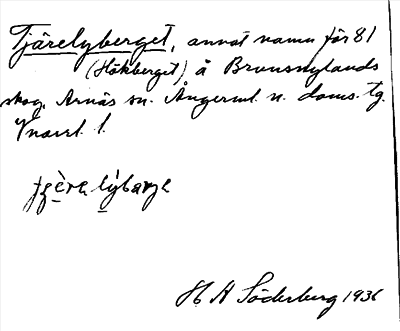 Tjärelyberget, annat namn för 81
(Hökberget) å Brunsnylands
skog. Arnäs sn. Ångerml. n. doms. tg.
Y norrl. l.
H A Söderberg 1936